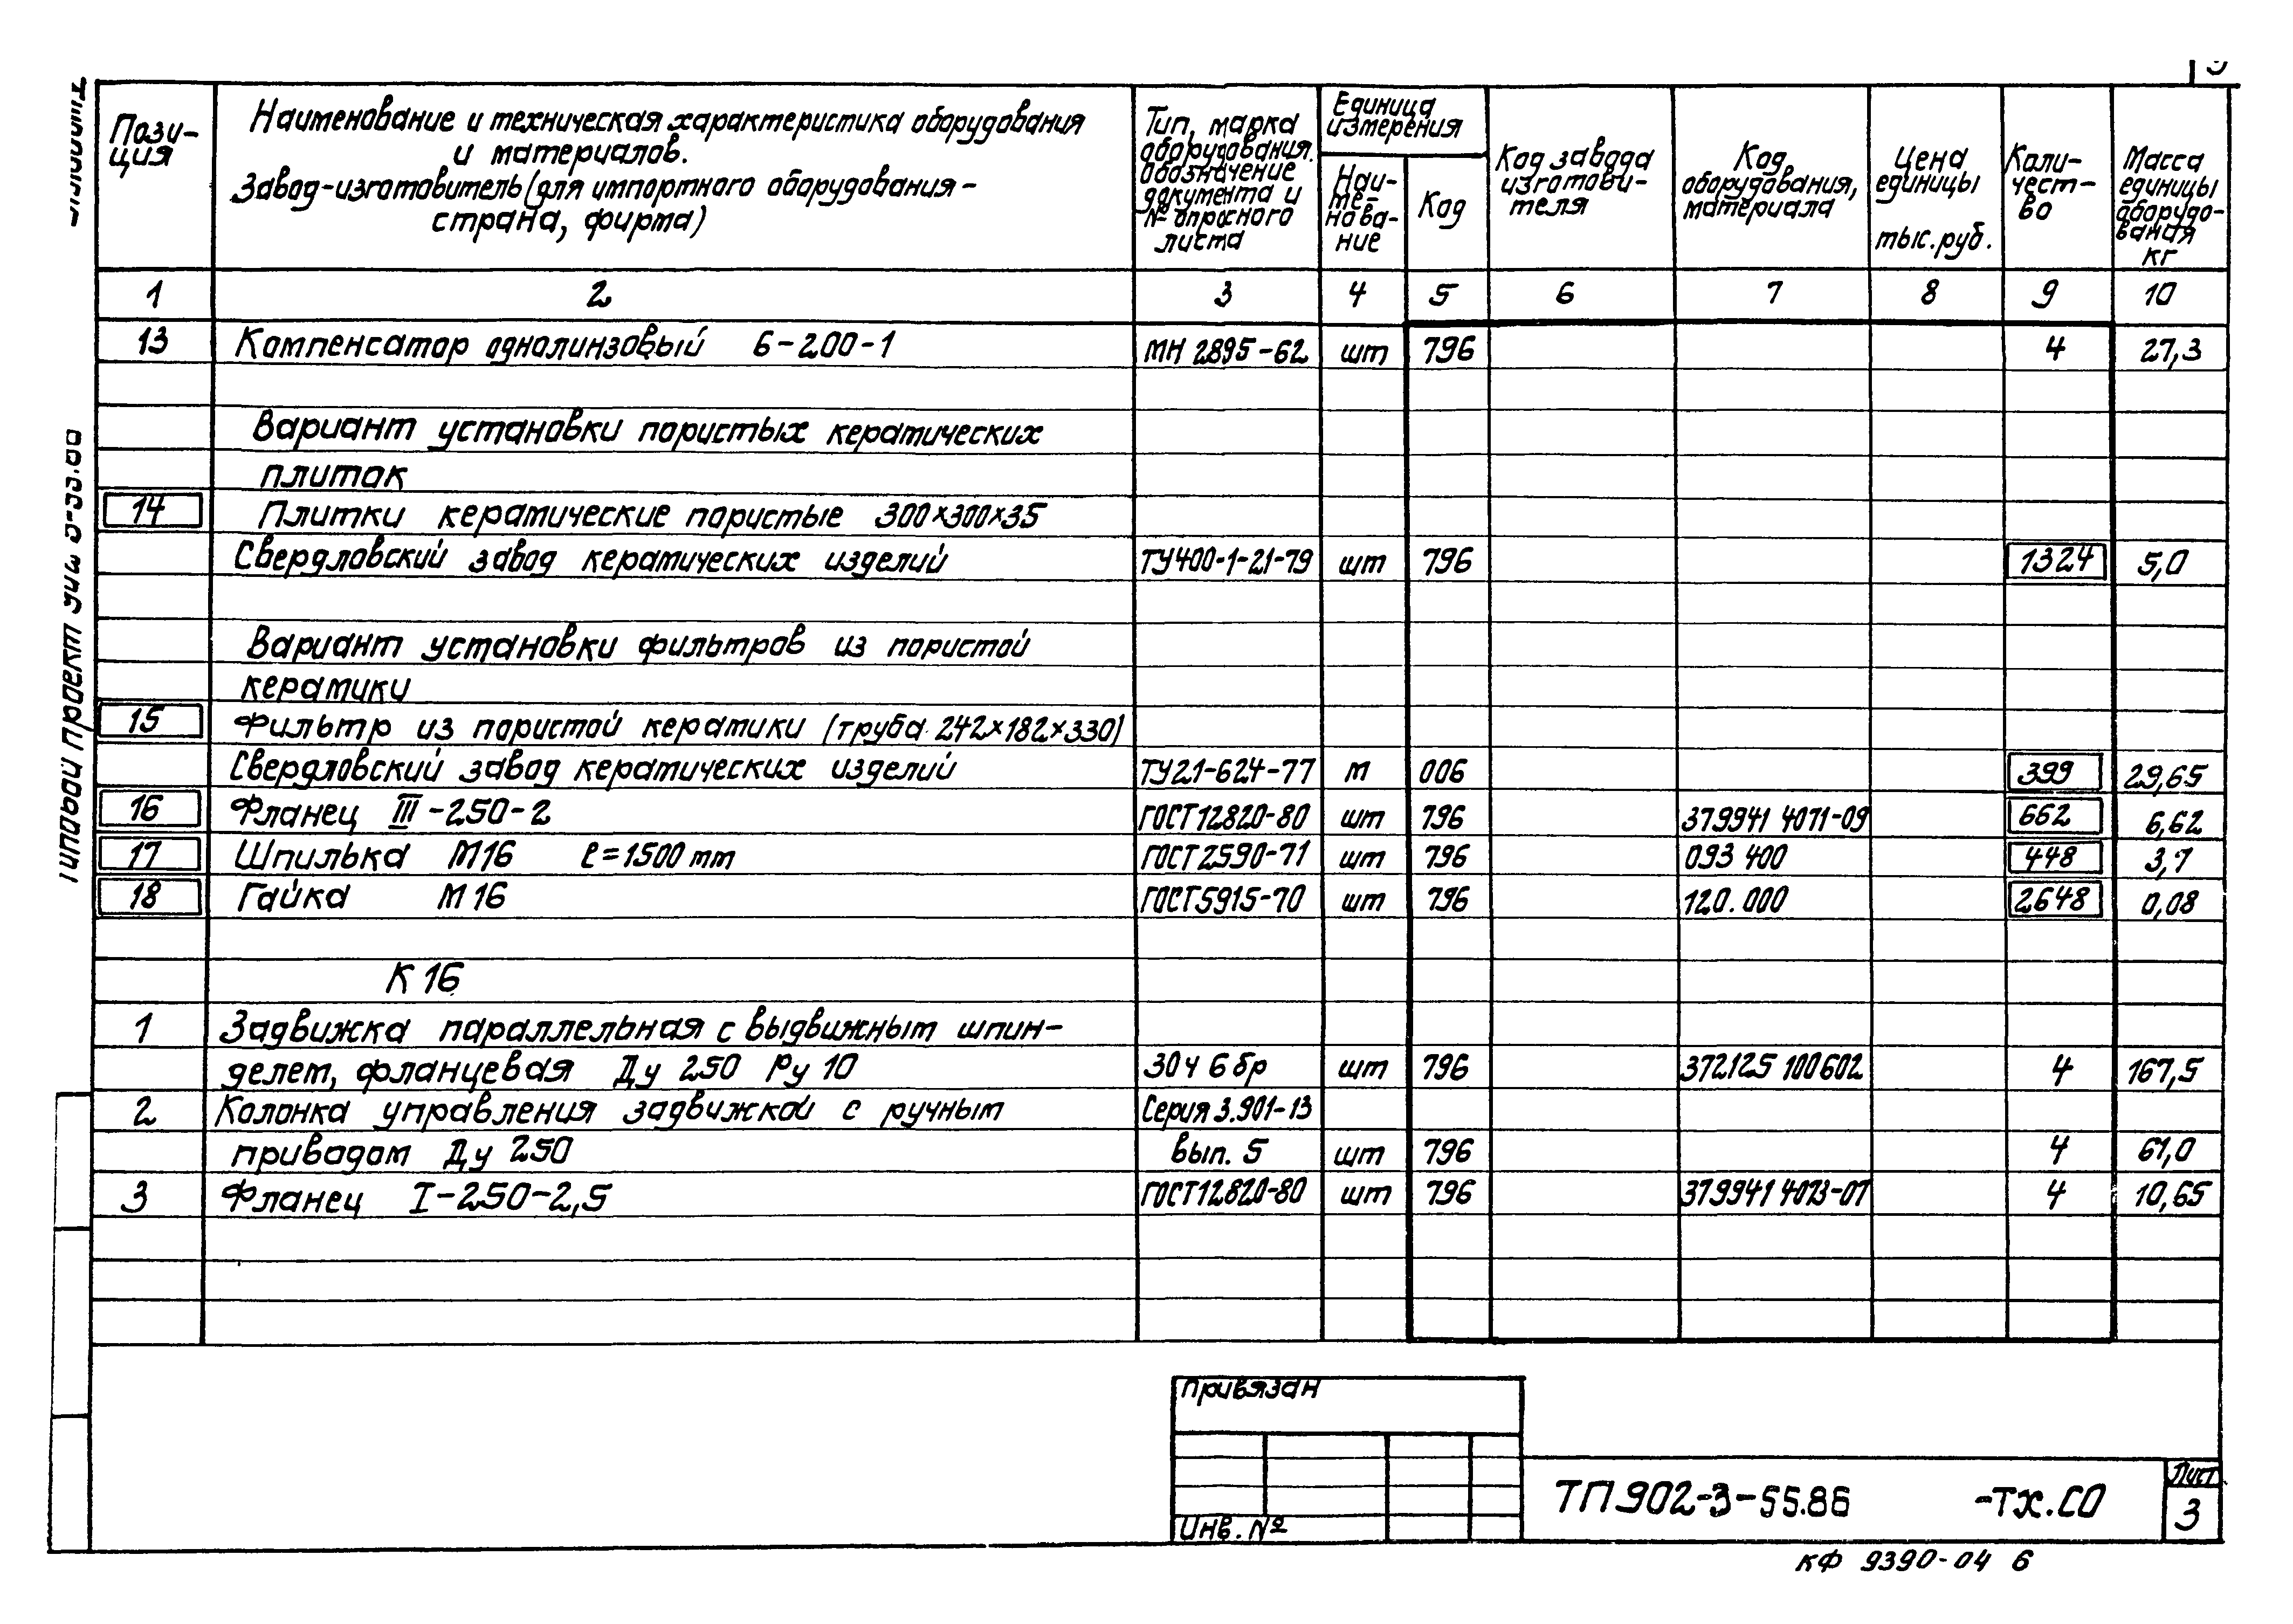 Пози-
ция
Наименование и техническая характеристика оборудования
и материалов.
Завод-изготовитель (для импортного оборудования-
страна, фирма)
Тип, марка
оборудования.
обозначение
документа и
№ опросного
листа
Единица
измерения
Наи-
ме-
нова-
ние
Код
Код завода
изготови-
теля
Код
оборудования,
материала
Цена
единицы
тыс. руб.
Коли-
чест-
во
Масса
единицы
оборудо-
вания
кг
1 2 3 4 5 6 7 8 9 10
13 Компенсатор однолинзовый 6-200-1 МН 2895-62 шт 796 4 27,3
Вариант установки пористых керамических
плиток
14 Плитки керамические пористые 300×300×35
Свердловский завод керамических изделий ТУ400-1-21-79 шт 796 1324 5,0
Вариант установки фильтров из пористой
керамики
15 Фильтр из пористой керамики (труба 242×182×330)
Свердловский завод керамических изделий ТУ21-624-77 м 006 399 29,65
16 Фланец III-250-2 ГОСТ12820-80 шт 796 379941 4071-09 662 6,62
17 Шпилька М16 ℓ=1500мм ГОСТ2590-71 шт 796 093 400 448 3,7
18 Гайка М16 ГОСТ5915-70 шт 796 120.000 2648 0,08
К 16
1 Задвижка параллельная с выдвижным шпин-
делем, фланцевая Ду 250 Ру 10 30ч 6бр шт 796 372125 100602 4 167,5
2 Колонка управления задвижкой с ручным Серия 3.901-13
приводом Ду 250 вып. 5 шт 796 4 61,0
3 Фланец I-250-2,5 ГОСТ12820-80 шт 796 379941 4073-07 4 10,65
Типовой проект
Привязан
Инв. №
ТП 902-3-55.86 -ТХ.СО
Лист
3
кф 9390-04 6